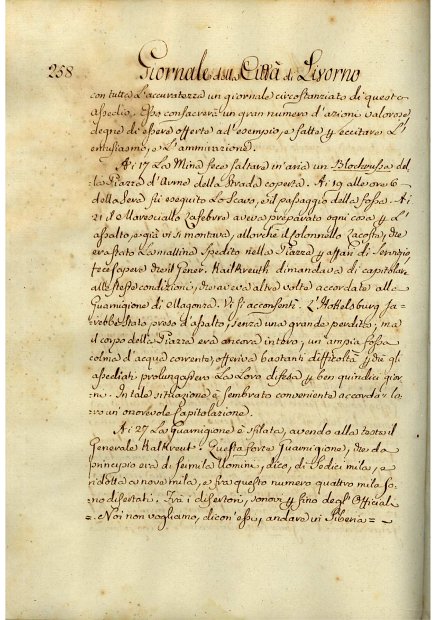 258
Giornale della Città di Livorno
con tutta l'accuratezza un giornale circostanziato di questo
assedio. Esso consacrerà un gran numero d'azioni valorose,
degne di essere offerte ad'esempio, e fatte p eccitare l'
entusiasmo, e l'ammirazione.
Ai 17 La Mina fece saltare in aria un Blockouss del
la Piazza d'Arme della Strada coperta. Ai 19 alle ore 6
della sera fù eseguito lo scavo, e il passaggio della fossa. Ai
21 il Maresciallo Lafebure aveva preparato ogni cosa p l'
assalto, e già vi si montava, allorchè il Colonnello Lacoste, che
era stato la mattina spedito nella Piazza p affari di servizio,
fece sapere che il Gener. Kalkreuth dimandava di capitolare
alle stesse condizioni, che aveva altre volte accordate alla
Guarnigione di Magonza. Vi si acconsentì. L'Hakelsburg sa-
rebbe stato preso d'assalto, senza una grande perdita; ma
il corpo della Piazza era ancora intero, un'ampia fossa
colma d'acqua corrente, offeriva bastanti difficoltà, p che gli
assediati prolungassero la loro difesa p ben quindici gior-
ni. In tale situazione è sembrato conveniente accordar lo-
ro un'onorevole Capitolazione.
Ai 27 La Guarnigione è sfilata, avendo alla testa il
Generale Kalkreut. Questa forte Guarnigione, che da
principio era di seimila Uomini, dico, di Sedici mila, e
ridotta a nove mila, e fra questo numero quattro mila so-
no disertati. Frà i disertori, sonovi p fino degl'Officiali
= Noi non vogliamo, dicon'essi, andare in Siberia =